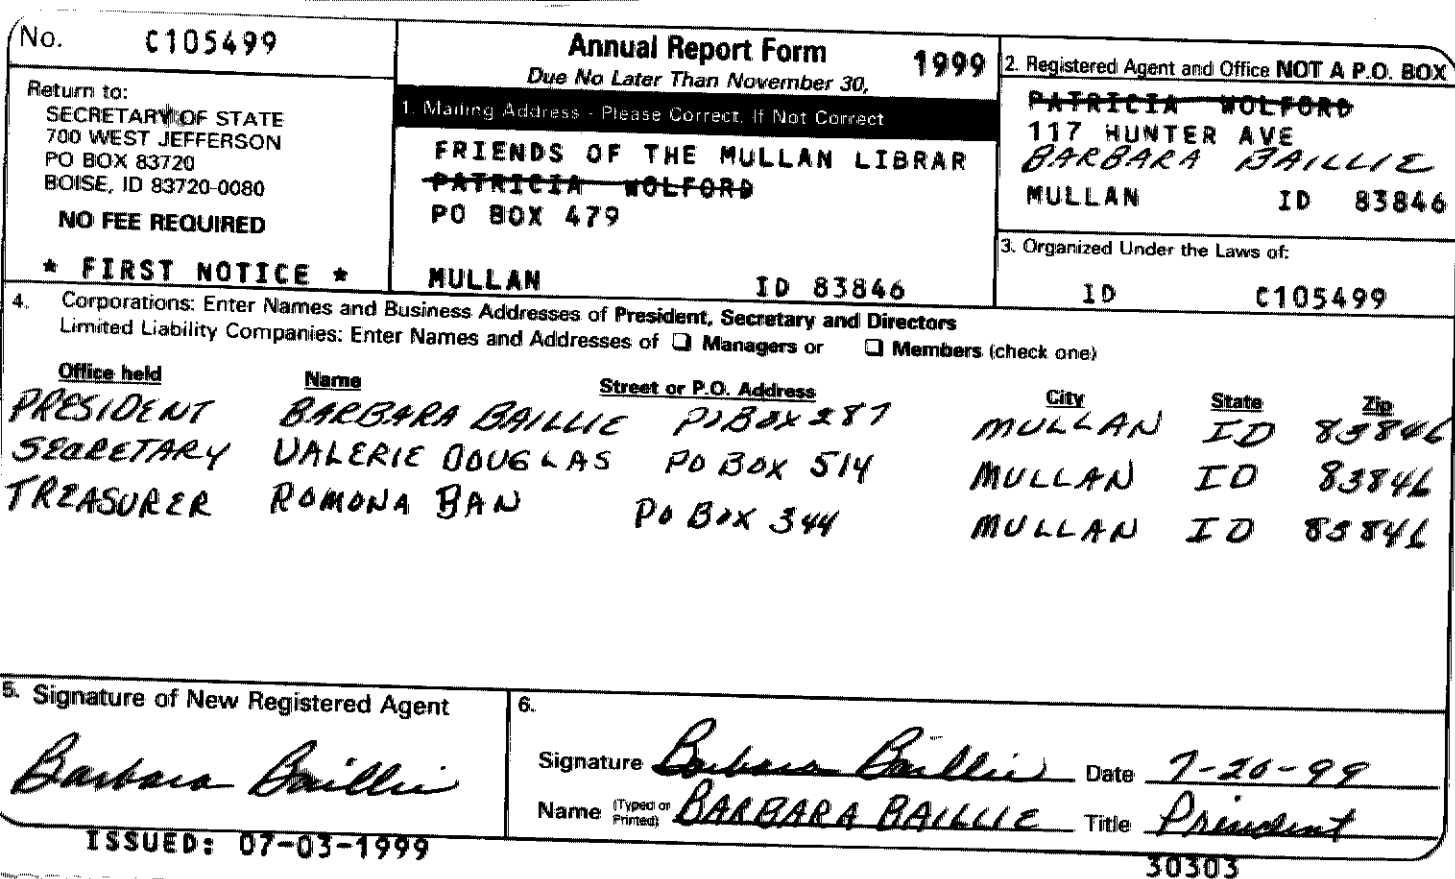 No. C105499
Return to:
SECRETARY OF STATE
700 WEST JEFFERSON
PO BOX 83720
BOISE, ID 83720-0080
NO FEE REQUIRED
* FIRST NOTICE *
Annual Report Form 1999
Due No Later Than November 30,
1. Mailing Address - Please Correct, If Not Correct
FRIENDS OF THE MULLAN LIBRAR
PATRICIA WOLFORD
PO BOX 479
MULLAN ID 83846
2. Registered Agent and Office NOT A P.O. BOX
PATRICIA WOLFORD
117 HUNTER AVE
BARBARA BAILLIE
MULLAN ID 83846
3. Organized Under the Laws of:
ID C105499
4. Corporations: Enter Names and Business Addresses of President, Secretary and Directors
Limited Liability Companies: Enter Names and Addresses of ❏ Managers or ❏ Members (check one)
Office held Name Street or P.O. Address City State Zip
PRESIDENT BARBARA BAILLIE PO BOX 287 MULLAN ID 83846
SECRETARY VALERIE DOUGLAS PO BOX 514 MULLAN ID 83846
TREASURER ROMONA BAN PO BOX 344 MULLAN ID 83846
5. Signature of New Registered Agent
Barbara Baillie
6.
Signature Barbara Baillie Date 7-20-99
Name (Typed or Printed) BARBARA BAILLIE Title President
ISSUED: 07-03-1999
30303